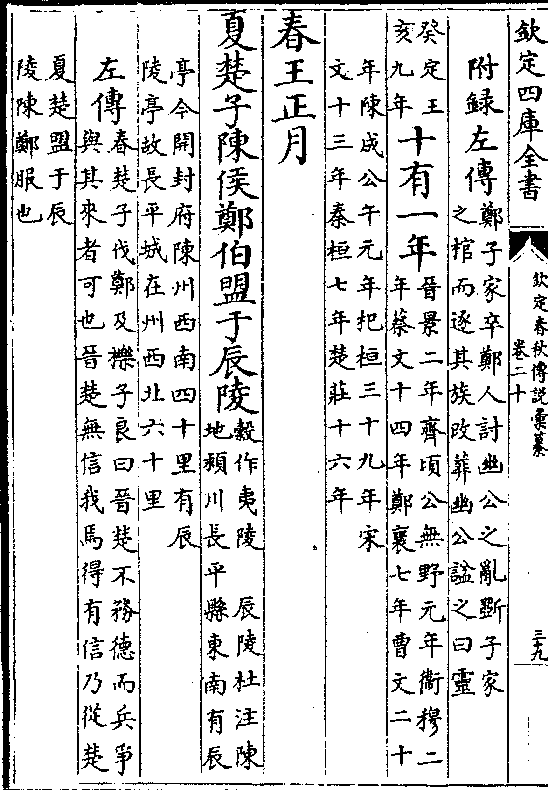 欽定四庫全書
欽定春秋傳說彙纂
卷二十
三十九
附録左傳鄭子家卒鄭人討幽公之亂斲子家
之棺而逐其族改葬幽公諡之曰靈
癸定王
亥九年
十有一年晉景二年齊頃公無野元年衞穆二
年蔡文十四年鄭襄七年曹文二十
年陳成公午元年杞桓三十九年宋
文十三年秦桓七年楚莊十六年
春王正月
夏楚子陳侯鄭伯盟于辰陵穀作夷陵 辰陵杜注陳
地潁川長平縣東南有辰
亭今開封府陳州西南四十里有辰
陵亭故長平城在州西北六十里
左傳春楚子伐鄭及櫟子良曰晉楚不務德而兵爭
與其來者可也晉楚無信我焉得有信乃從楚
夏楚盟于辰
陵陳鄭服也